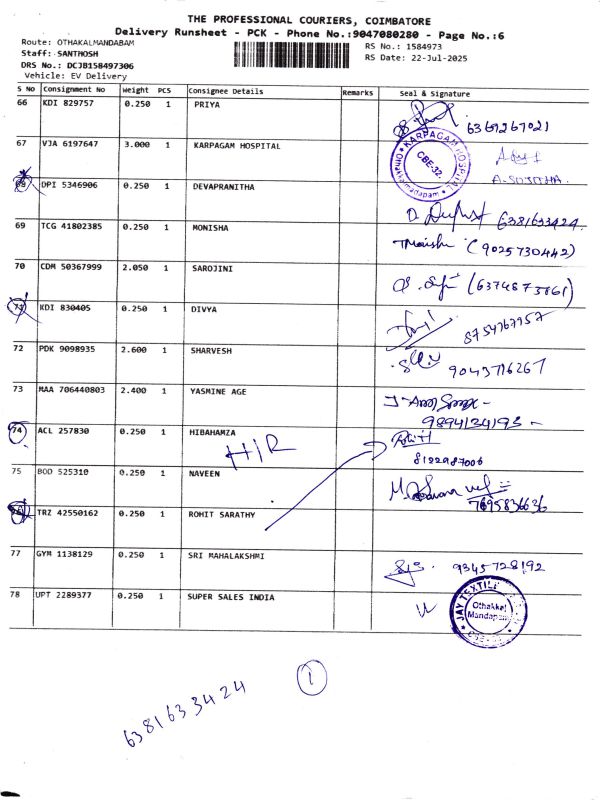 THE PROFESSIONAL COURIERS, COIMBATORE
Delivery Runsheet - PCK - Phone No.:9047080280 - Page No.:6
Route: OTHAKALMANDABAM
RS No.: 1584973
Staff: SANTHOSH
RS Date: 22-Jul-2025
DRS No.: DCJB158497306
Vehicle: EV Delivery
S No Consignment No Weight PCS Consignee Details Remarks Seal & Signature
66 KDI 829757 0.250 1 PRIYA
6369267021
67 VJA 6197647 3.000 1 KARPAGAM HOSPITAL
KARPAGAM HOSPITAL
CBE-32.
Othakkalmandapam
A-SUJITHA.
68 DPI 5346906 0.250 1 DEVAPRANITHA
6381633424
69 TCG 41802385 0.250 1 MONISHA
(9025730442)
70 CDM 50367999 2.050 1 SAROJINI
71 KDI 830405 0.250 1 DIVYA
72 PDK 9098935 2.600 1 SHARVESH
73 MAA 706440803 2.400 1 YASMINE AGE
9894134193
74 ACL 257830 0.250 1 HIBAHAMZA
H/R
8122987006
75 BOD 525310 0.250 1 NAVEEN
7695836636
76 TRZ 42550162 0.250 1 ROHIT SARATHY
77 GYM 1138129 0.250 1 SRI MAHALAKSHMI
9345728192
78 UPT 2289377 0.250 1 SUPER SALES INDIA
JAY TEXTILE
Othakkal
Mandapam
1
6381633424